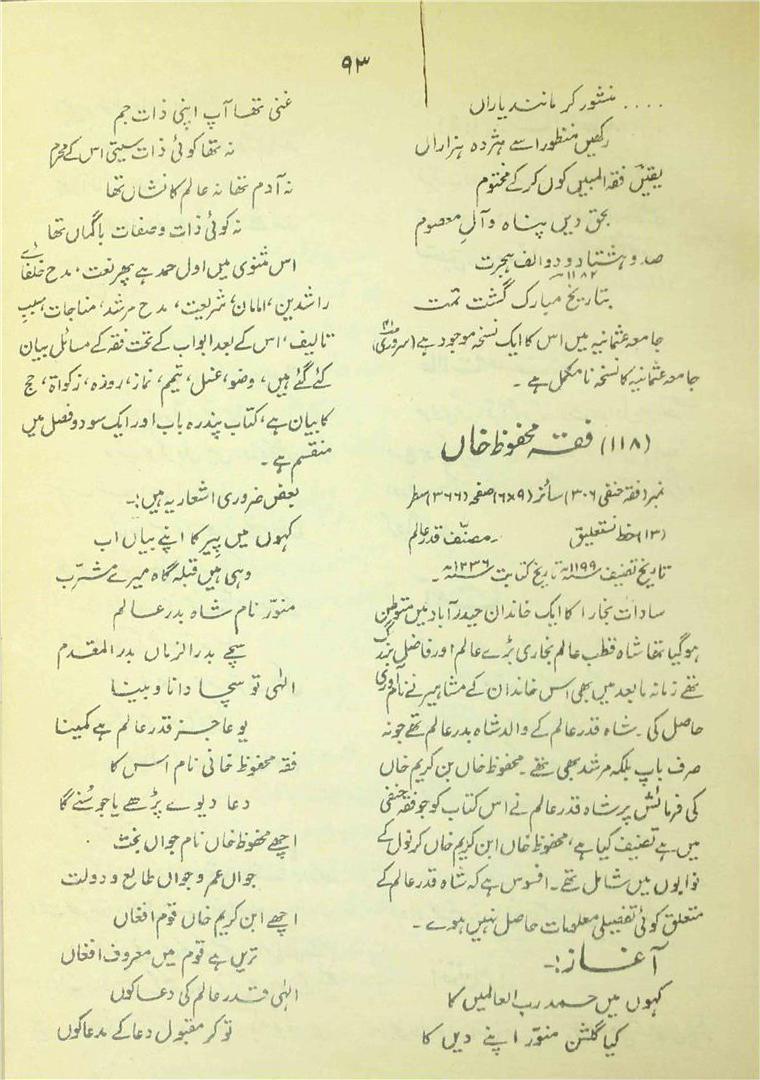 ۹۳
.... منشور کر مانند یاراں
رکھیں منظور اسے ہژدہ ہزاراں
یقیں فقہ المبیں کوں کر کے مختوم
بحق دیں پناہ و آلِ معصوم
صد و ہشتاد و دو الف ہجرت
۱۱۸۲ھ
بتاریخ مبارک گشت تمت
جامعہ عثمانیہ میں اس کا ایک نسخہ موجود ہے (سروری)
جامعہ عثمانیہ کا نسخہ نامکمل ہے ۔
(۱۱۸) فقہ محفوظ خاں
نمبر (فقہ حنفی ۳۰۶) سائز (۹×۶) صفحہ (۳۶۶) سطر
(۱۳) خط نستعلیق ۔ مصنّف قدر عالم
تاریخ تصنیف ۱۱۹۹ھ تاریخ کتابت ۱۲۳۶ھ ۔
سادات بخارا کا ایک خاندان حیدرآباد میں متوطن
ہو گیا تھا شاہ قطب عالم بخاری بڑے عالم اور فاضل بزرگ
تھے زمانہ مابعد میں بھی اس خاندان کے مشاہیر نے نام آوری
حاصل کی ۔ شاہ قدر عالم کے والد شاہ بدر عالم تھے جو نہ
صرف باپ بلکہ مرشد بھی تھے ۔ محفوظ خاں بن کریم خاں
کی فرمائش پر شاہ قدر عالم نے اس کتاب کو جو فقہ حنفی
میں ہے تصنیف کیا ہے، محفوظ خاں ابن کریم خاں کرنول کے
نوابوں میں شامل تھے ۔ افسوس ہے کہ شاہ قدر عالم کے
متعلق کوئی تفصیلی معلومات حاصل نہیں ہوے ۔
آغاز :۔
کہوں میں حمد رب العالمیں کا
کیا گلشن منوّر اپنے دیں کا
غنی تھا آپ اپنی ذات جم
نہ تھا کوئی ذات سیتی اس کے محرم
نہ آدم تھا نہ عالم کا نشاں تھا
نہ کوئی ذات و صفات با گماں تھا
اس مثنوی میں اول حمد ہے پھر نعت، مدح خلفائے
راشدین، امامان، شریعت، مدح مرشد، مناجات، سبب
تالیف، اس کے بعد ابواب کے تحت فقہ کے مسائل بیان
کئے گئے ہیں، وضو، غسل، تیمم، نماز، روزہ، زکواۃ، حج
کا بیان ہے، کتاب پندرہ باب اور ایک سو دو فصل میں
منقسم ہے ۔
بعض ضروری اشعار یہ ہیں :۔
کہوں میں پیر کا اپنے بیاں اب
وہی ہیں قبلہ گاہ میرے مشرّب
منوّر نام شاہ بدر عالم
سچے بدر الزماں بدر المقدم
الٰہی تو سچا دانا و بینا
یو عاجز قدر عالم ہے کمینا
فقہ محفوظ خانی نام اس کا
دعا دیوے پڑھے یا جو سُنے گا
اچھے محفوظ خاں نام جواں بخت
جواں عمر و جواں طالع و دولت
اچھے ابن کریم خاں قوم افغاں
تریں ہے قوم میں معروف افغاں
الٰہی قدر عالم کی دعا کوں
تو کر مقبول دعا کے مدعا کوں